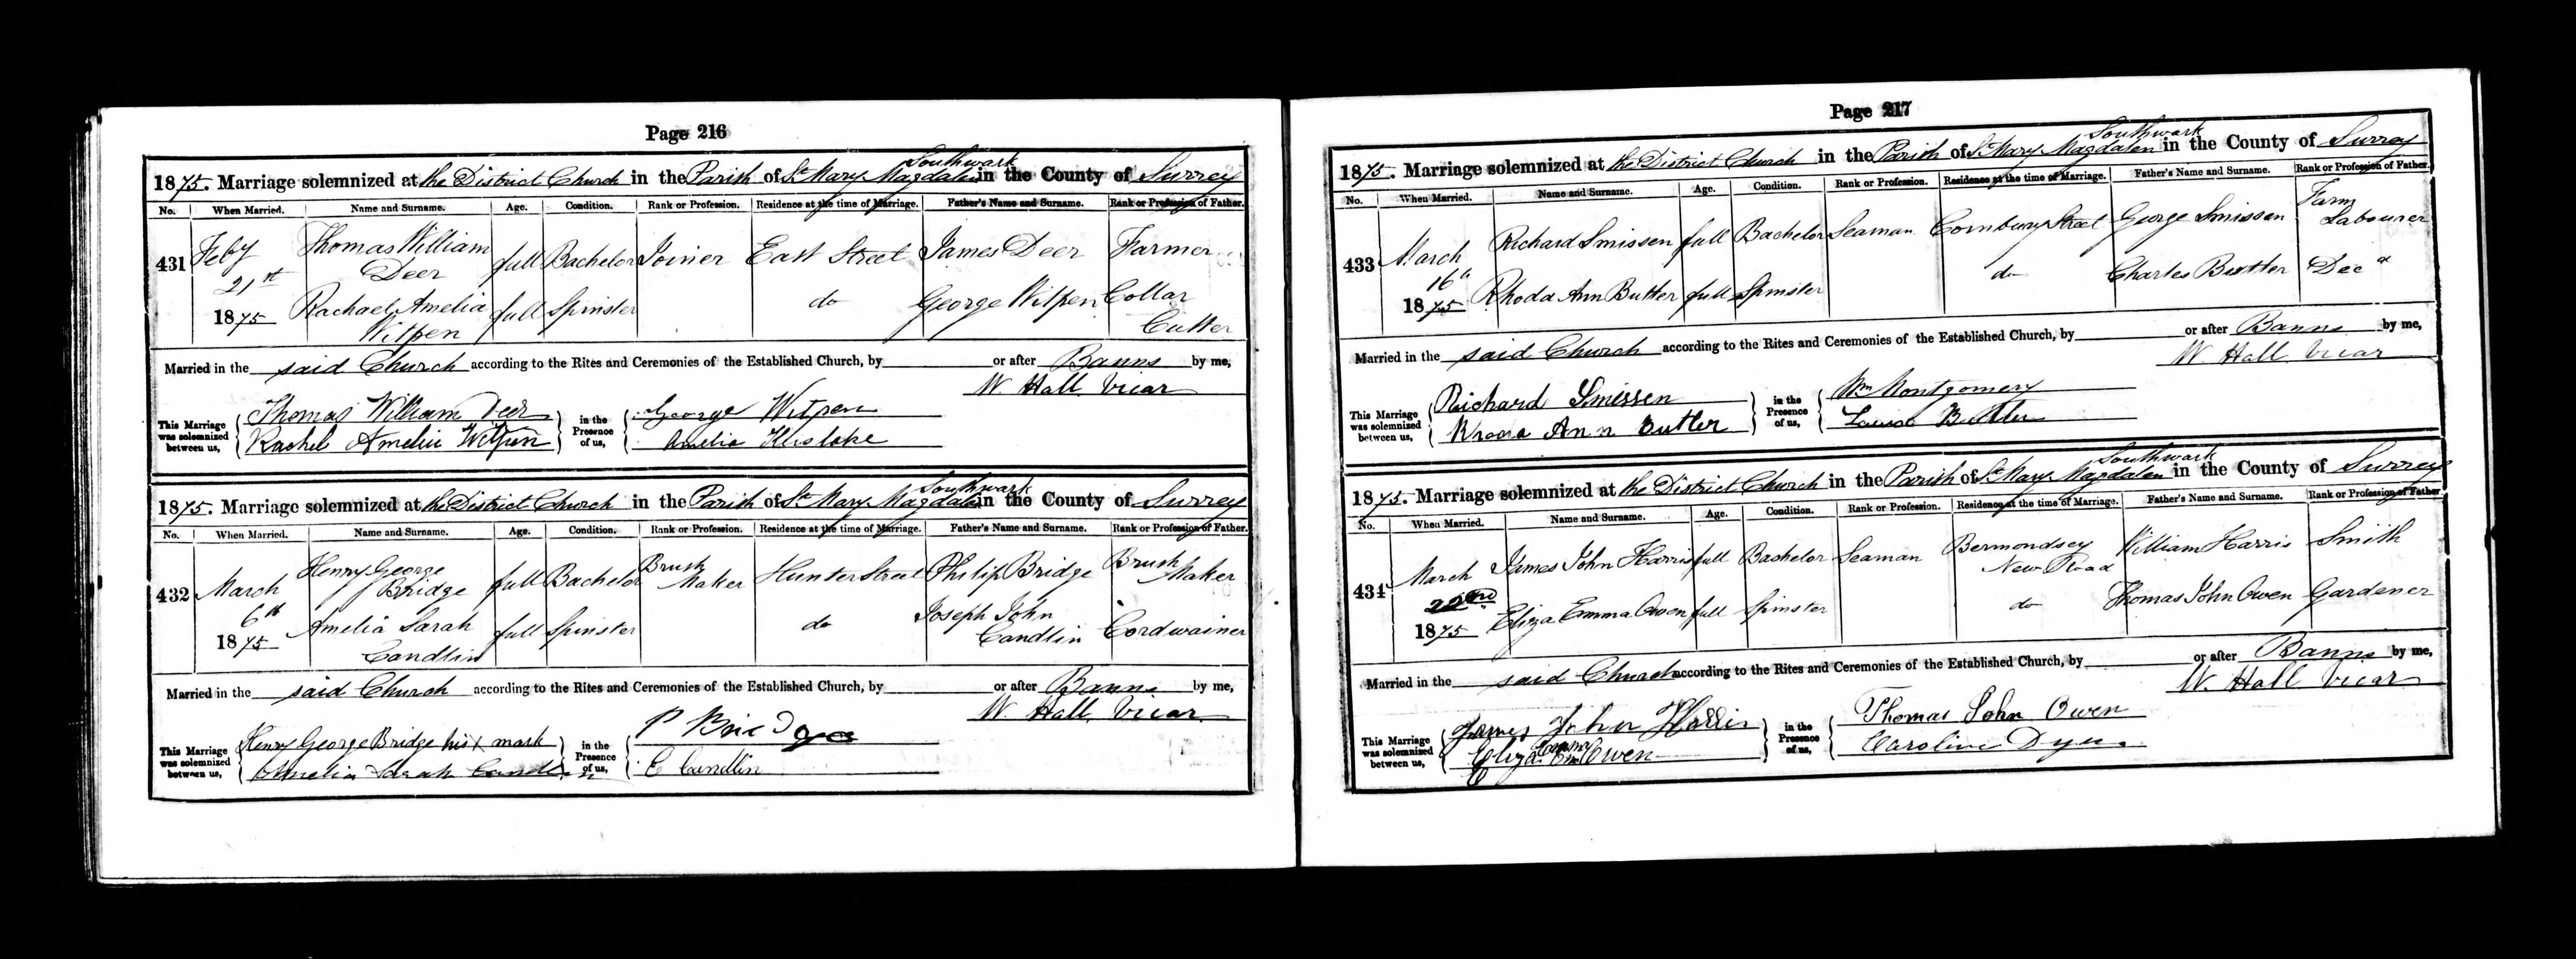 Page 216
1875. Marriage solemnized at the District Church in the Parish of St Mary Magdalen Southwark in the County of Surrey
No. When Married. Name and Surname. Age. Condition. Rank or Profession. Residence at the time of Marriage. Father's Name and Surname. Rank or Profession of Father.
431 Feby 21st 1875
Thomas William Deer full Bachelor Joiner East Street James Deer Farmer
Rachael Amelia Witpen full Spinster do George Witpen Collar Cutter
Married in the said Church according to the Rites and Ceremonies of the Established Church, by or after Banns by me,
W. Hall Vicar
This Marriage was solemnized between us, Thomas William Deer in the Presence of us, George Witpen
Rachel Amelia Witpen Amelia
1875. Marriage solemnized at the District Church in the Parish of St Mary Magdalen Southwark in the County of Surrey
No. When Married. Name and Surname. Age. Condition. Rank or Profession. Residence at the time of Marriage. Father's Name and Surname. Rank or Profession of Father.
432 March 6th 1875
Henry George Bridge full Bachelor Brush Maker Hunter Street Philip Bridge Brush Maker
Amelia Sarah Candlin full Spinster do Joseph John Candlin Cordwainer
Married in the said Church according to the Rites and Ceremonies of the Established Church, by or after Banns by me,
W. Hall Vicar
This Marriage was solemnized between us, Henry George Bridge his x mark in the Presence of us, P Bridge
Amelia Sarah Candlin E Candlin
Page 217
1875. Marriage solemnized at the District Church in the Parish of St Mary Magdalen Southwark in the County of Surrey
No. When Married. Name and Surname. Age. Condition. Rank or Profession. Residence at the time of Marriage. Father's Name and Surname. Rank or Profession of Father.
433 March 16th 1875
Richard Smissen full Bachelor Seaman Cornbury Street George Smissen Farm Labourer
Rhoda Ann Butler full Spinster do Charles Butler Decd
Married in the said Church according to the Rites and Ceremonies of the Established Church, by or after Banns by me,
W. Hall Vicar
This Marriage was solemnized between us, Richard Smissen in the Presence of us, Wm Montgomery
Ann Butler Louisa Butler
1875. Marriage solemnized at the District Church in the Parish of St Mary Magdalen Southwark in the County of Surrey
No. When Married. Name and Surname. Age. Condition. Rank or Profession. Residence at the time of Marriage. Father's Name and Surname. Rank or Profession of Father.
434 March 22nd 1875
James John Harris full Bachelor Seaman Bermondsey New Road William Harris Smith
Eliza Emma Owen full Spinster do Thomas John Owen Gardener
Married in the said Church according to the Rites and Ceremonies of the Established Church, by or after Banns by me,
W. Hall Vicar
This Marriage was solemnized between us, James John Harris in the Presence of us, Thomas John Owen
Eliza Emma Owen Caroline